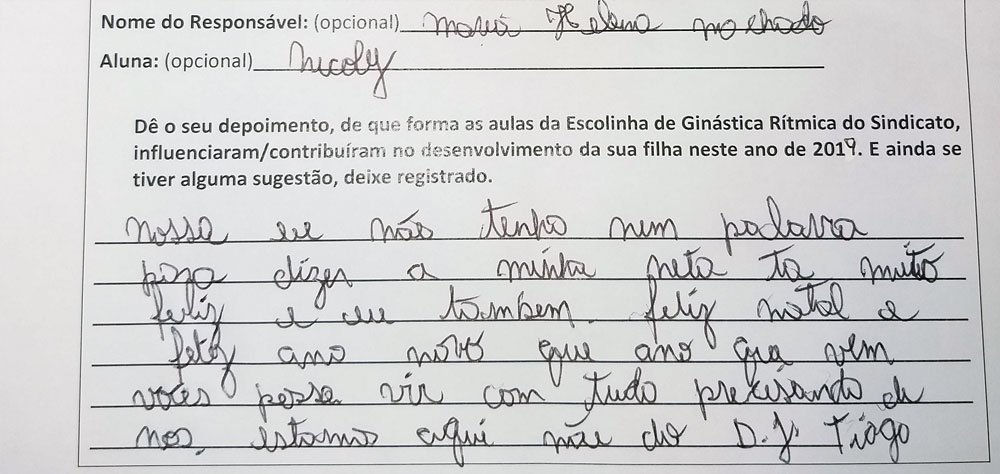 Nome do Responsável: (opcional) maria Helena machado
Aluna: (opcional) Nicoly
Dê o seu depoimento, de que forma as aulas da Escolinha de Ginástica Rítmica do Sindicato,
influenciaram/contribuíram no desenvolvimento da sua filha neste ano de 2019. E ainda se
tiver alguma sugestão, deixe registrado.
nossa eu não tenho nem palavra
para dizer a minha neta ta muito
feliz e eu tambem. feliz natal e
feliz ano novo que ano que vem
voces possa vir com tudo precisando de
nos. estamos aqui mãe do D.J. Tiago